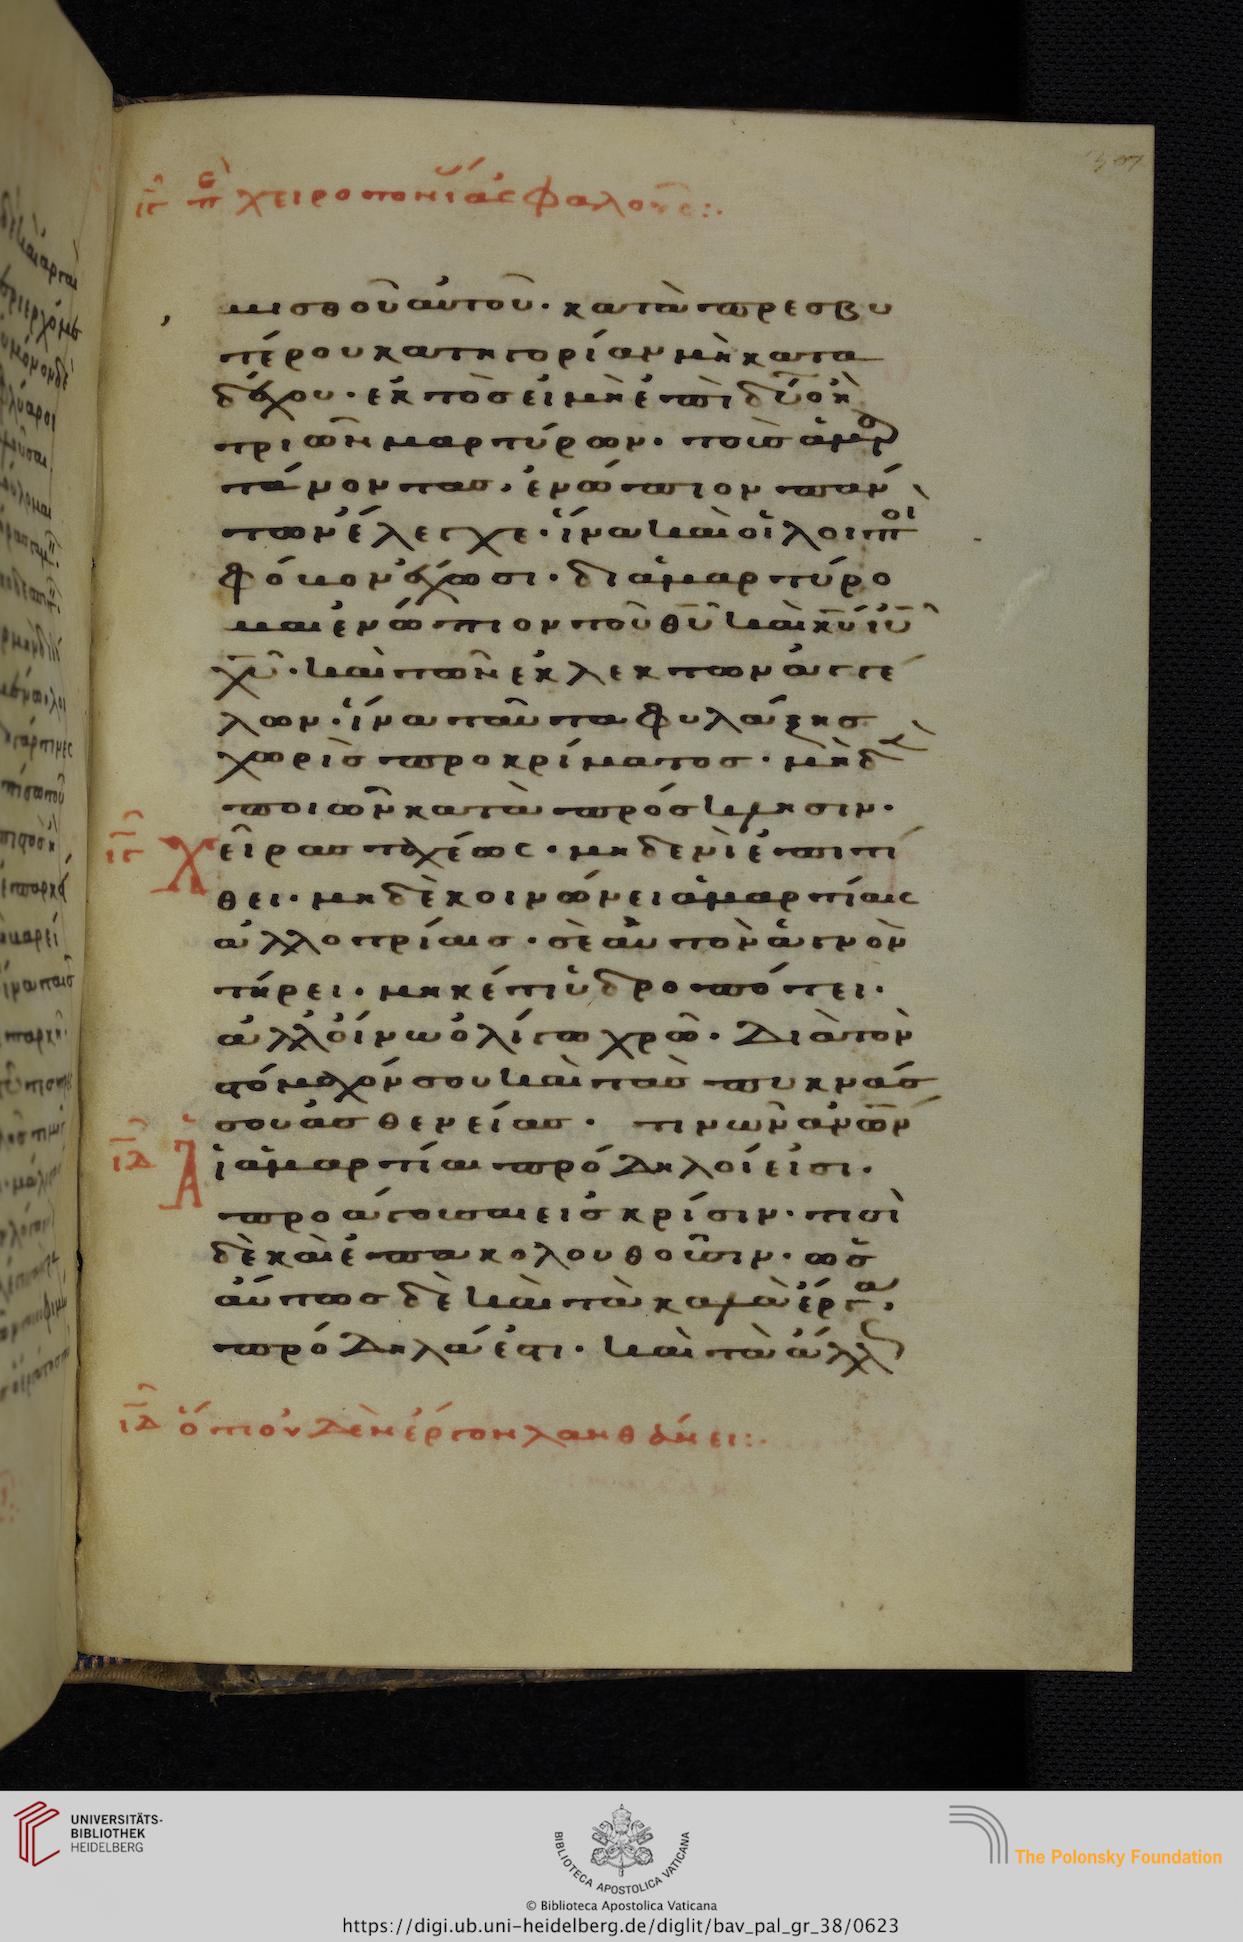 ιγ πε χειροτονίας φαύλους:.
μισθοῦ αὐτοῦ· κατὰ πρεσβυ
τέρου κατηγορίαν μὴ παρα
δέχου· ἐκτὸς εἰ μὴ ἐπὶ δύο ἢ
τριῶν μαρτύρων· τοὺς ἁμαρ
τάνοντας, ἐνώπιον πάν
των ἔλεγχε· ἵνα καὶ οἱ λοιποὶ
φόβον ἔχωσι· διαμαρτύρο
μαι ἐνώπιον τοῦ θυ καὶ κυ ιυ
χυ· καὶ τῶν ἐκλεκτῶν ἀγγέ
λων· ἵνα ταῦτα φυλάξῃς
χωρὶς προκρίματος· μηδὲν
ποιῶν κατὰ πρόσκλησιν·
ιγ Χεῖρας ταχέως· μηδενὶ ἐπιτί
θει· μηδὲ κοινώνει ἁμαρτίαις
ἀλλοτρίαις· σεαυτὸν ἁγνὸν
τήρει· μηκέτι ὑδροπότει·
ἀλλ' οἴνω ὀλίγω χρῶ· Διὰ τὸν
στόμαχόν σου καὶ τὰς πυκνάς
σου ἀσθενείας· τινῶν ανων
ιδ Αἱ ἁμαρτίαι πρόδηλοί εἰσι·
προάγουσαι εἰς κρίσιν· τισὶ
δὲ καὶ ἐπακολουθοῦσιν· ὡσ
αύτως δὲ καὶ τὰ καλὰ ἔργα,
πρόδηλά ἐστι· καὶ τὰ ἄλλως
ιδ ὅτι οὐδὲν ἔργον λανθάνει:.
UNIVERSITÄTS-
BIBLIOTHEK
HEIDELBERG
BIBLIOTECA APOSTOLICA VATICANA
The Polonsky Foundation
© Biblioteca Apostolica Vaticana
https://digi.ub.uni-heidelberg.de/diglit/bav_pal_gr_38/0623